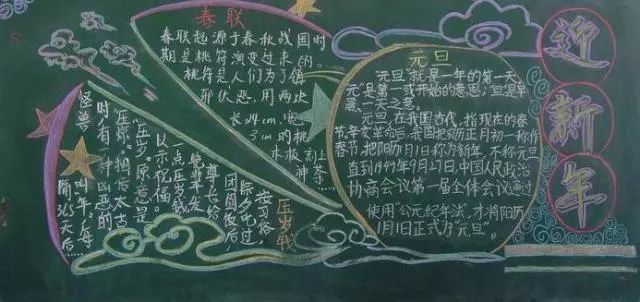 春联
春联起源于春秋战国时
期是桃符演变过来的。
桃符是人们为了镇
邪伏恶,用两块
长4cm、宽
3cm的桃
木板刻上
神荼
元旦
元旦就是一年的第一天
元是第一或开始的意思;旦是早
晨,一天之意。
元旦,在我国古代,指现在的春
节,辛亥革命后,我国把阴历正月初一称作
春节,把阳历1月1日称为新年,不称元旦
直到1949年9月27日,中国人民政治
协商会议第一届全体会议通过
使用"公元纪年法",才将阳历
1月1日正式为"元旦"。
迎
新
年
压岁钱
按习俗,
除夕吃过
团圆饭后
尊长给
晚辈平发
一点压岁钱
以示祝福
压岁原意是
压祟。相传太古
时有一种凶恶的
怪兽
叫年,每
隔365天后